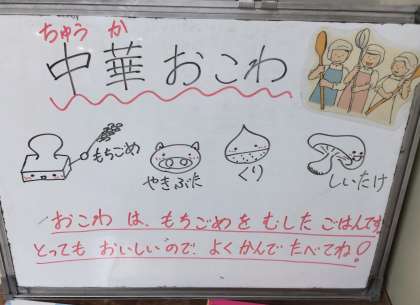 ちゅう か
中華おこわ
もちごめ
やきぶた
くり
しいたけ
おこわ は、もちごめを むした ごはんです
とっても おいしいので よくかんで たべてね!